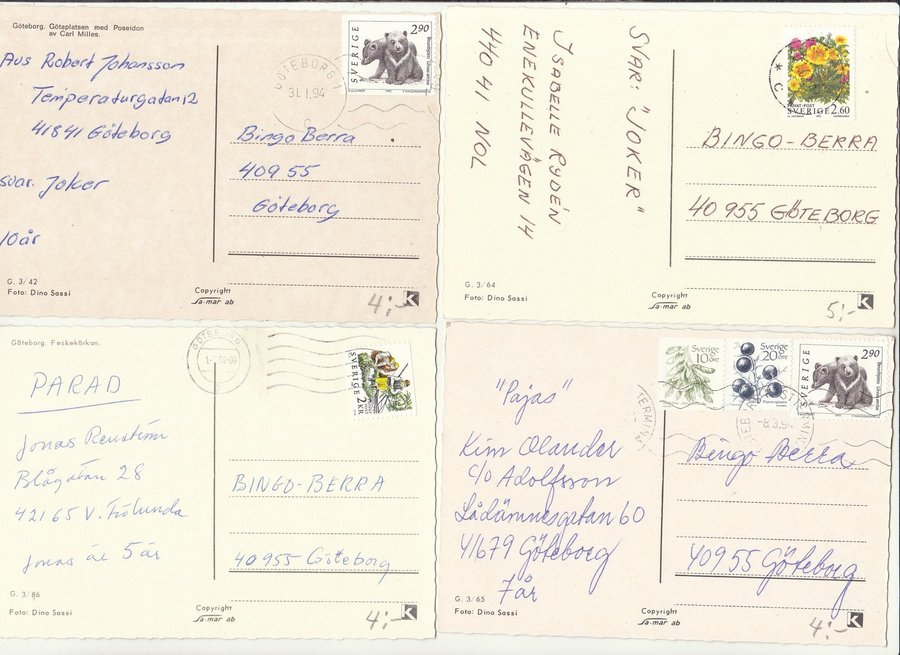 Göteborg. Götaplatsen med Poseidon
av Carl Milles.
SVERIGE
2.90
GÖTEBORG
31.1.94
C
Aus Robert Johansson
Temperaturgatan 12
41841 Göteborg
svar. Joker
10 år
Bingo Berra
409 55
Göteborg
G. 3/42
Foto: Dino Sassi
Copyright
Sa-mar ab
4:-
K
SVAR: "JOKER"
ISABELLE RYDÉN
ENEKULLEVÄGEN 14
440 41 NOL
* C
PRIVAT-POST
SVERIGE 2.60
BINGO-BERRA
40 955 GÖTEBORG
G. 3/64
Foto: Dino Sassi
Copyright
Sa-mar ab
5:-
K
Göteborg. Feskekörkan.
GÖTEBORG
SVERIGE 2 KR
PARAD
Jonas Renström
Blågatan 28
42165 V. Frölunda
Jonas är 5 år
BINGO-BERRA
40955 Göteborg
G. 3/86
Foto: Dino Sassi
Copyright
Sa-mar ab
4:-
K
Sverige
10 öre
Sverige
20 öre
SVERIGE
2.90
TERMINAL
-8.3.94
"Pajas"
Kim Olander
C/O Adolfsson
Lådämnesgatan 60
41679 Göteborg
7 år
Bingo Berra
40955 Göteborg
G. 3/65
Foto: Dino Sassi
Copyright
Sa-mar ab
4:-
K